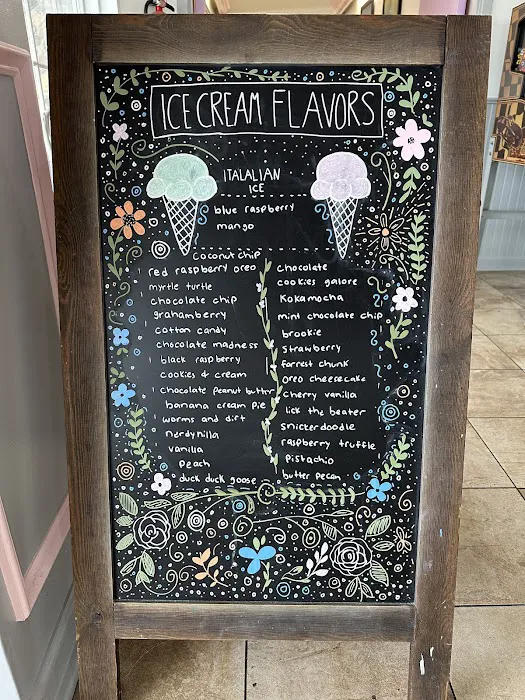 ICE CREAM FLAVORS
ITALALIAN
ICE
blue raspberry
mango
coconut chip
red raspberry oreo
myrtle turtle
chocolate chip
grahamberry
cotton candy
chocolate madness
black raspberry
cookies & cream
chocolate peanut butter
banana cream pie
worms and dirt
nerdynilla
vanilla
peach
duck duck goose
chocolate
cookies galore
Kokamocha
mint chocolate chip
brookie
strawberry
forrest chunk
oreo cheesecake
cherry vanilla
lick the beater
snickerdoodle
raspberry truffle
pistachio
butter pecan